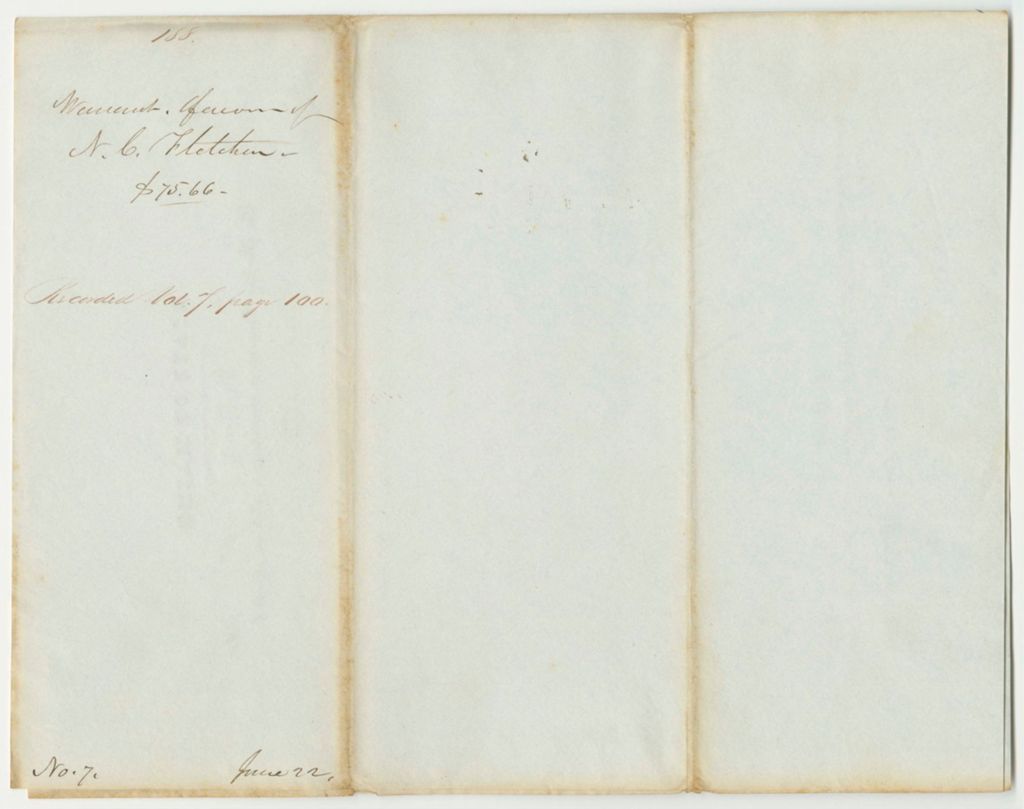 188.
Warrant. favor of
N. C. Fletcher.
$75.66-
Recorded Vol. 7. page 100.
No. 7. June 22,